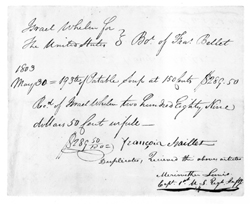 Israel Whelen for
The United States Bot. of Fras. Baillet
1803
May 30 = 193 lb of Portable Soup at 150 Cents $289.50
Recd. of Israel Whelen two Hundred Eighty Nine
dollars 50 Cents in full
$289.50 François Baillet
Duplicates, Received the above articles
Meriwether Lewis
Capt. 1st. U.S. Regt. Inft.